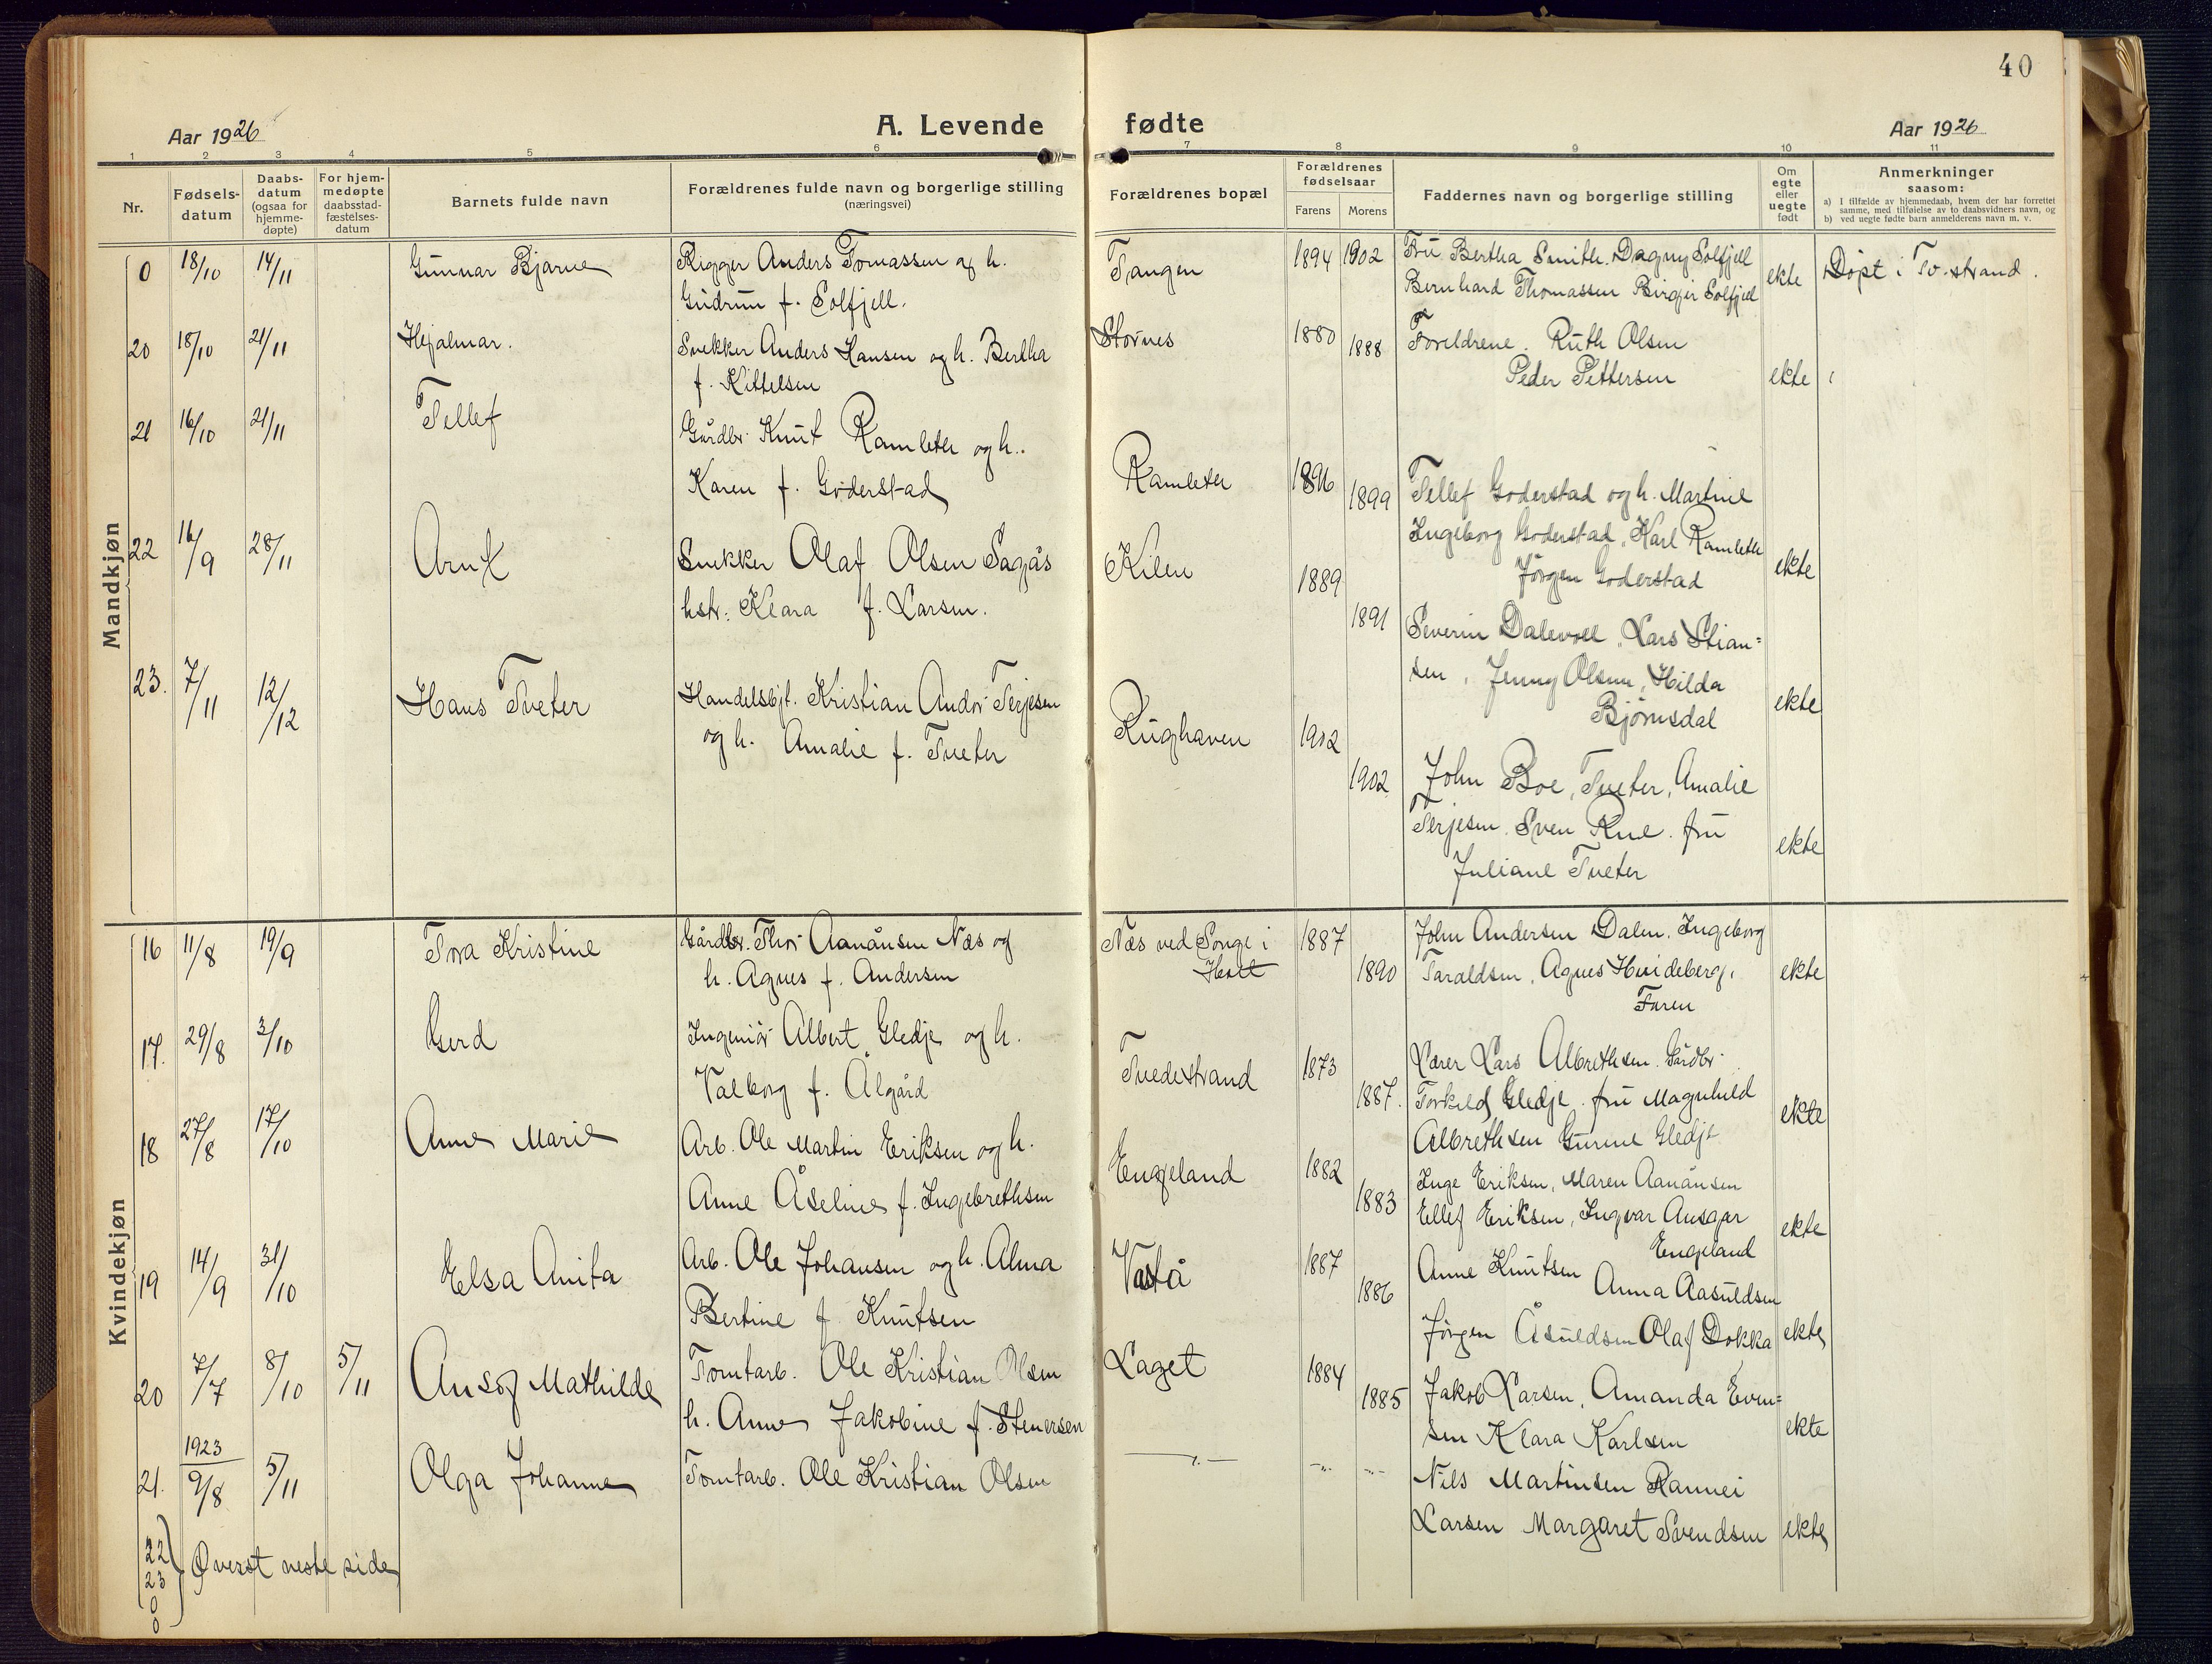 40
Aar 1926
A. Levende fødte
Aar 1926
1 2 3 4 5 6 7 8 9 10 11
Nr.
Fødsels-
datum
Daabs-
datum
(ogsaa for
hjemme-
døpte)
For hjem-
medøpte
daabsstad-
fæstelses-
datum
Barnets fulde navn
Forældrenes fulde navn og borgerlige stilling
(næringsvei)
Forældrenes bopæl
Forældrenes
fødselsaar
Farens Morens
Faddernes navn og borgerlige stilling
Om
egte
eller
uegte
født
Anmerkninger
saasom:
a) I tilfælde av hjemmedaab, hvem der har forrettet
samme, med tilføielse av to daabsvidners navn, og
b) ved uegte fødte barn anmelderens navn m. v.
Mandkjøn
0 18/10 14/11 Gunnar Bjarne
Rigger Anders Tomassen og h.
Gudrun f. Solfjell.
Tangen 1894 1902
Fru Bertha Smith. Dagny Solfjell
Bernhard Thomassen Birger Solfjell
ekte Døpt i Tv.strand.
20 18/10 21/11 Hjalmar.
Snekker Anders Hansen og h. Bertha
f. Kittelsen
Stornes 1880 1888
Foreldrene. Ruth Olsen
Peder Pettersen
ekte
21 16/10 21/11 Tellef
Gårdbr. Knut Ramleth og h.
Karen f. Goderstad
Ramleth 1896 1899
Tellef Goderstad og h. Martine
Ingeborg Goderstad, Karl Ramleth
Jørgen Goderstad
ekte
22 16/9 28/11 Arnt
Snekker Olaf Olsen Sagås
hstr. Klara f. Larsen.
Kilen 1889 1891
Severin Dalevoll, Lars Stian=
sen, Jenny Olsen, Hilda
Bjørnsdal
ekte
23. 7/11 12/12 Hans Tveter
Handelsbjt. Kristian Andor Terjesen
og h. Amalie f. Tveter
Rughaven 1902 1902
John Boe, Tveter, Amalie
Terjesen. Sven Rue. fru
Juliane Tveter
ekte
Kvindekjøn
16 11/8 19/9 Tora Kristine
Gårdbr. Thor Aanånsen Næs og
h. Agnes f. Andersen
Næs ved Songe i
Holt
1887 1890
John Andersen Dalen, Ingeborg
Taraldsen, Agnes Hvideberg,
Faren
ekte
17. 29/8 3/10 Gerd
Ingeniør Albert Gledje og h.
Valborg f. Ålgård
Tvedestrand 1873 1887.
Lærer Lars Albrethsen. Gårdbr.
Torkild Gledje. fru Magnhild
Albrethsen Gurine Gledje
ekte
18 27/8 17/10 Anne Marie
Arb. Ole Martin Eriksen og h.
Anne Åseline f. Ingebrethsen
Engeland 1882 1883
Inge Eriksen, Maren Aanånsen
Ellef Eriksen, Ingvar Ansgar
Engeland
ekte
19 14/9 31/10 Elsa Anita
Arb. Ole Johansen og h. Alma
Bertine f Knutsen
Vastå 1887 1886
Anne Knutsen Anna Aasuldsen
Jørgen Åsuldsen Olaf Dokka
ekte
20 7/7 8/10 5/11 Ansof Mathilde
Tomtarb. Ole Kristian Olsen
h. Anne Jakobine f. Stenersen
Laget 1884 1885
Jakob Larsen, Amanda Even=
sen Klara Karlsen
ekte
21. 1923 9/8 5/11 Olga Johanne
Tomtarb. Ole Kristian Olsen
—"— -"- -"-
Nils Martinsen Rannei
Larsen Margaret Svendsen
ekte
22
23
0
0
Øverst neste side